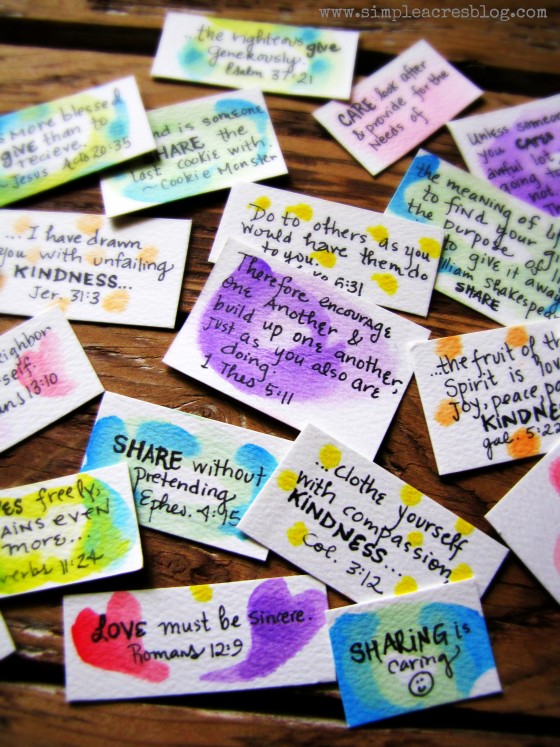 www.simpleacresblog.com
...the righteous give
generously.
Psalm 37:21
CARE look after
& provide for the
needs of
more blessed
give than to
recieve.
~ Jesus Acts 20:35
is someone
SHARE the
last cookie with.
~ Cookie Monster
Unless someone
you
awful lot
going
the meaning of
to find your
the purpose
to give it away
Shakespeare
SHARE
Do to others as you
would have them do
to you.
6:31
...I have drawn
you with unfailing
KINDNESS...
Jer. 31:3
Therefore encourage
one another &
build up one another,
just as you also are
doing.
1 Thes 5:11
neighbor
13:10
...the fruit of the
Spirit is love
Joy, peace
KINDNESS
gal. 5:22
SHARE without
pretending
Ephes. 4:15
...clothe yourself
with compassion
KINDNESS...
Col. 3:12
freely,
even
more...
11:24
LOVE must be sincere.
Romans 12:9
SHARING is
caring